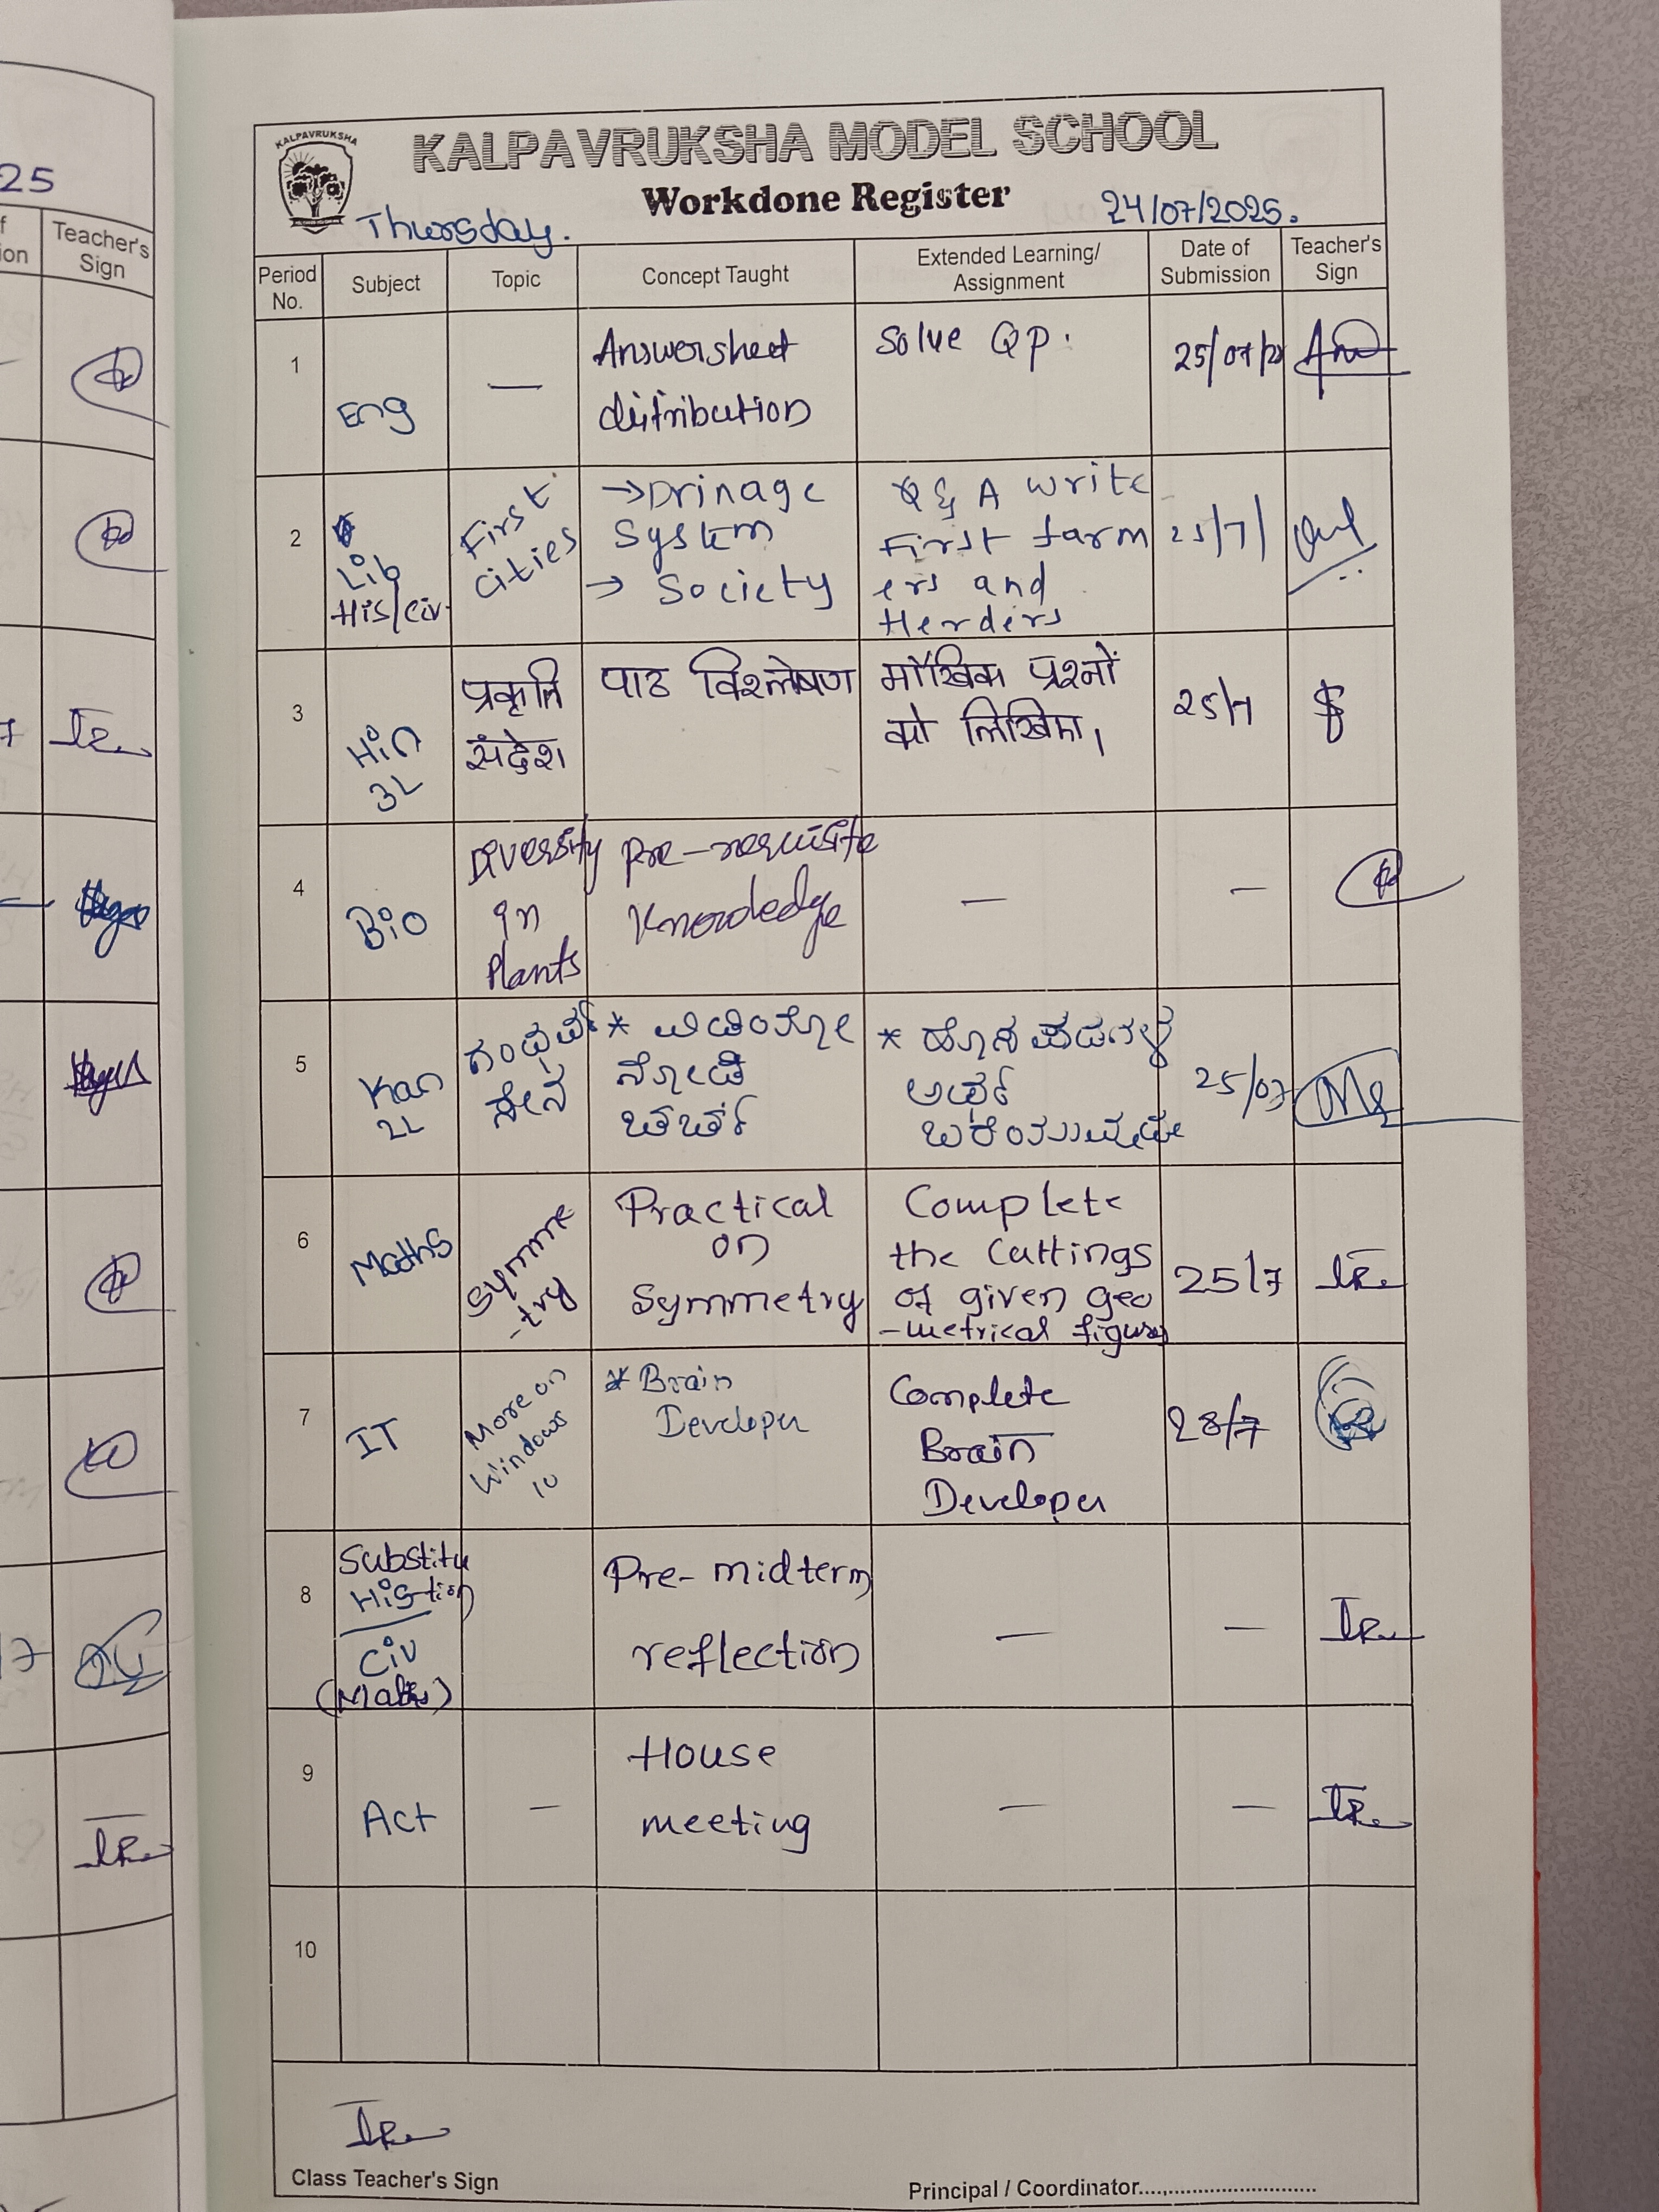 25
Teacher's
Sign
KALPAVRUKSHA
KALPAVRUKSHA MODEL SCHOOL
Workdone Register
Thursday.
24/07/2025.
Period No. Subject Topic Concept Taught Extended Learning/ Assignment Date of Submission Teacher's Sign
1 Eng — Answersheet distribution Solve QP. 25/07/2
2 Lib His/civ First Cities → Drinage System → Society Q & A write First farm ers and Herders 25/7/
3 Hin 3L प्रकृति संदेश पाठ विश्लेषण मौखिक प्रश्नों को लिखिए। 25/7
4 Bio Diversity in Plants Pre-requisite Knowledge — —
5 Kan 2L ಗಂಧರ್ವ ಸೇನೆ * ವಿಡಿಯೋ ನೋಡಿ ಚರ್ಚೆ * ಹೊಸ ಪದಗಳ ಅರ್ಥ ಬರೆಯುವುದು 25/07
6 Maths Symme -try Practical on Symmetry Complete the cuttings of given geo -metrical figures 25/7
7 IT More on Windows 10 * Brain Developer Complete Brain Developer 28/7
8 Substitu -tion His Civ (Maths) Pre-midterm reflection — —
9 Act — House meeting — —
10
Class Teacher's Sign
Principal / Coordinator..............................